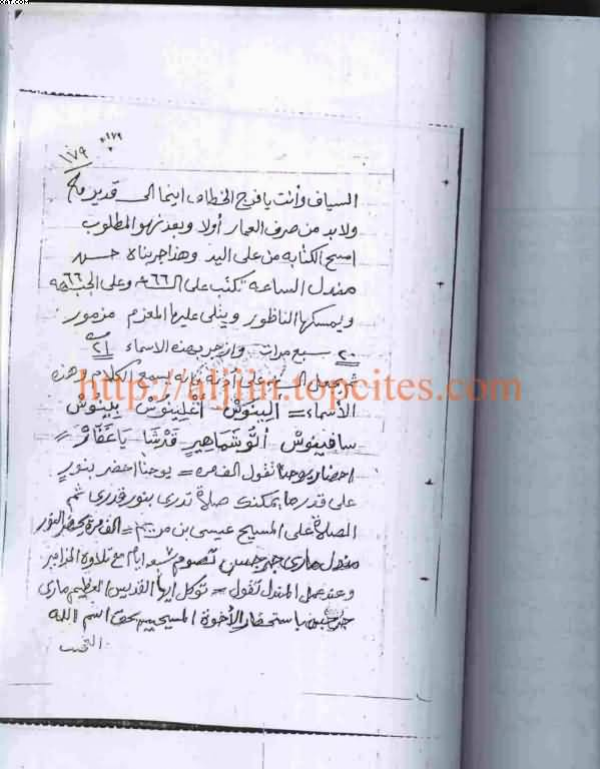 XAT.COM
١٧٩
١٧٩
السياف وأنت يا فرج الخطاف اينما الى
ولا بد من صرف العمار أولا وبعد نهو المطلوب
امسح الكتابه من على اليد وهذا جربناه
مندل الساعة تكتب على الـ ٦٦ وعلى الجبهه ٦٦
ويمسكها الناظور ويتلى عليها المعزم مزمور
٢٠ سبع مرات وازجر بهذه الاسماء ٢١
ثم تجعل على أذنه فإنه يسمع الكلام وهذه
http://aljiin.topcites.com
الأسماء = الينوش اغلينوش يلينوش
سافينوش أنوشماهير قدشا يا غفار =
احضار يوحنا تقول القمره = يوحنا احضر بنور
على قدر ما يمكنك صلاة تدرى بنور قدرى ثم
الصلاة على المسيح عيسى بن مريم = القمره يحضر النور
مندل مارى جرجس تصوم ٧ ايام مع تلاوة المزامير
وعند عمل المندل تقول = توكل ايها القديس العظيم مارى
جرجس باستحضار الأخوة المسيحيين بحق اسم الله